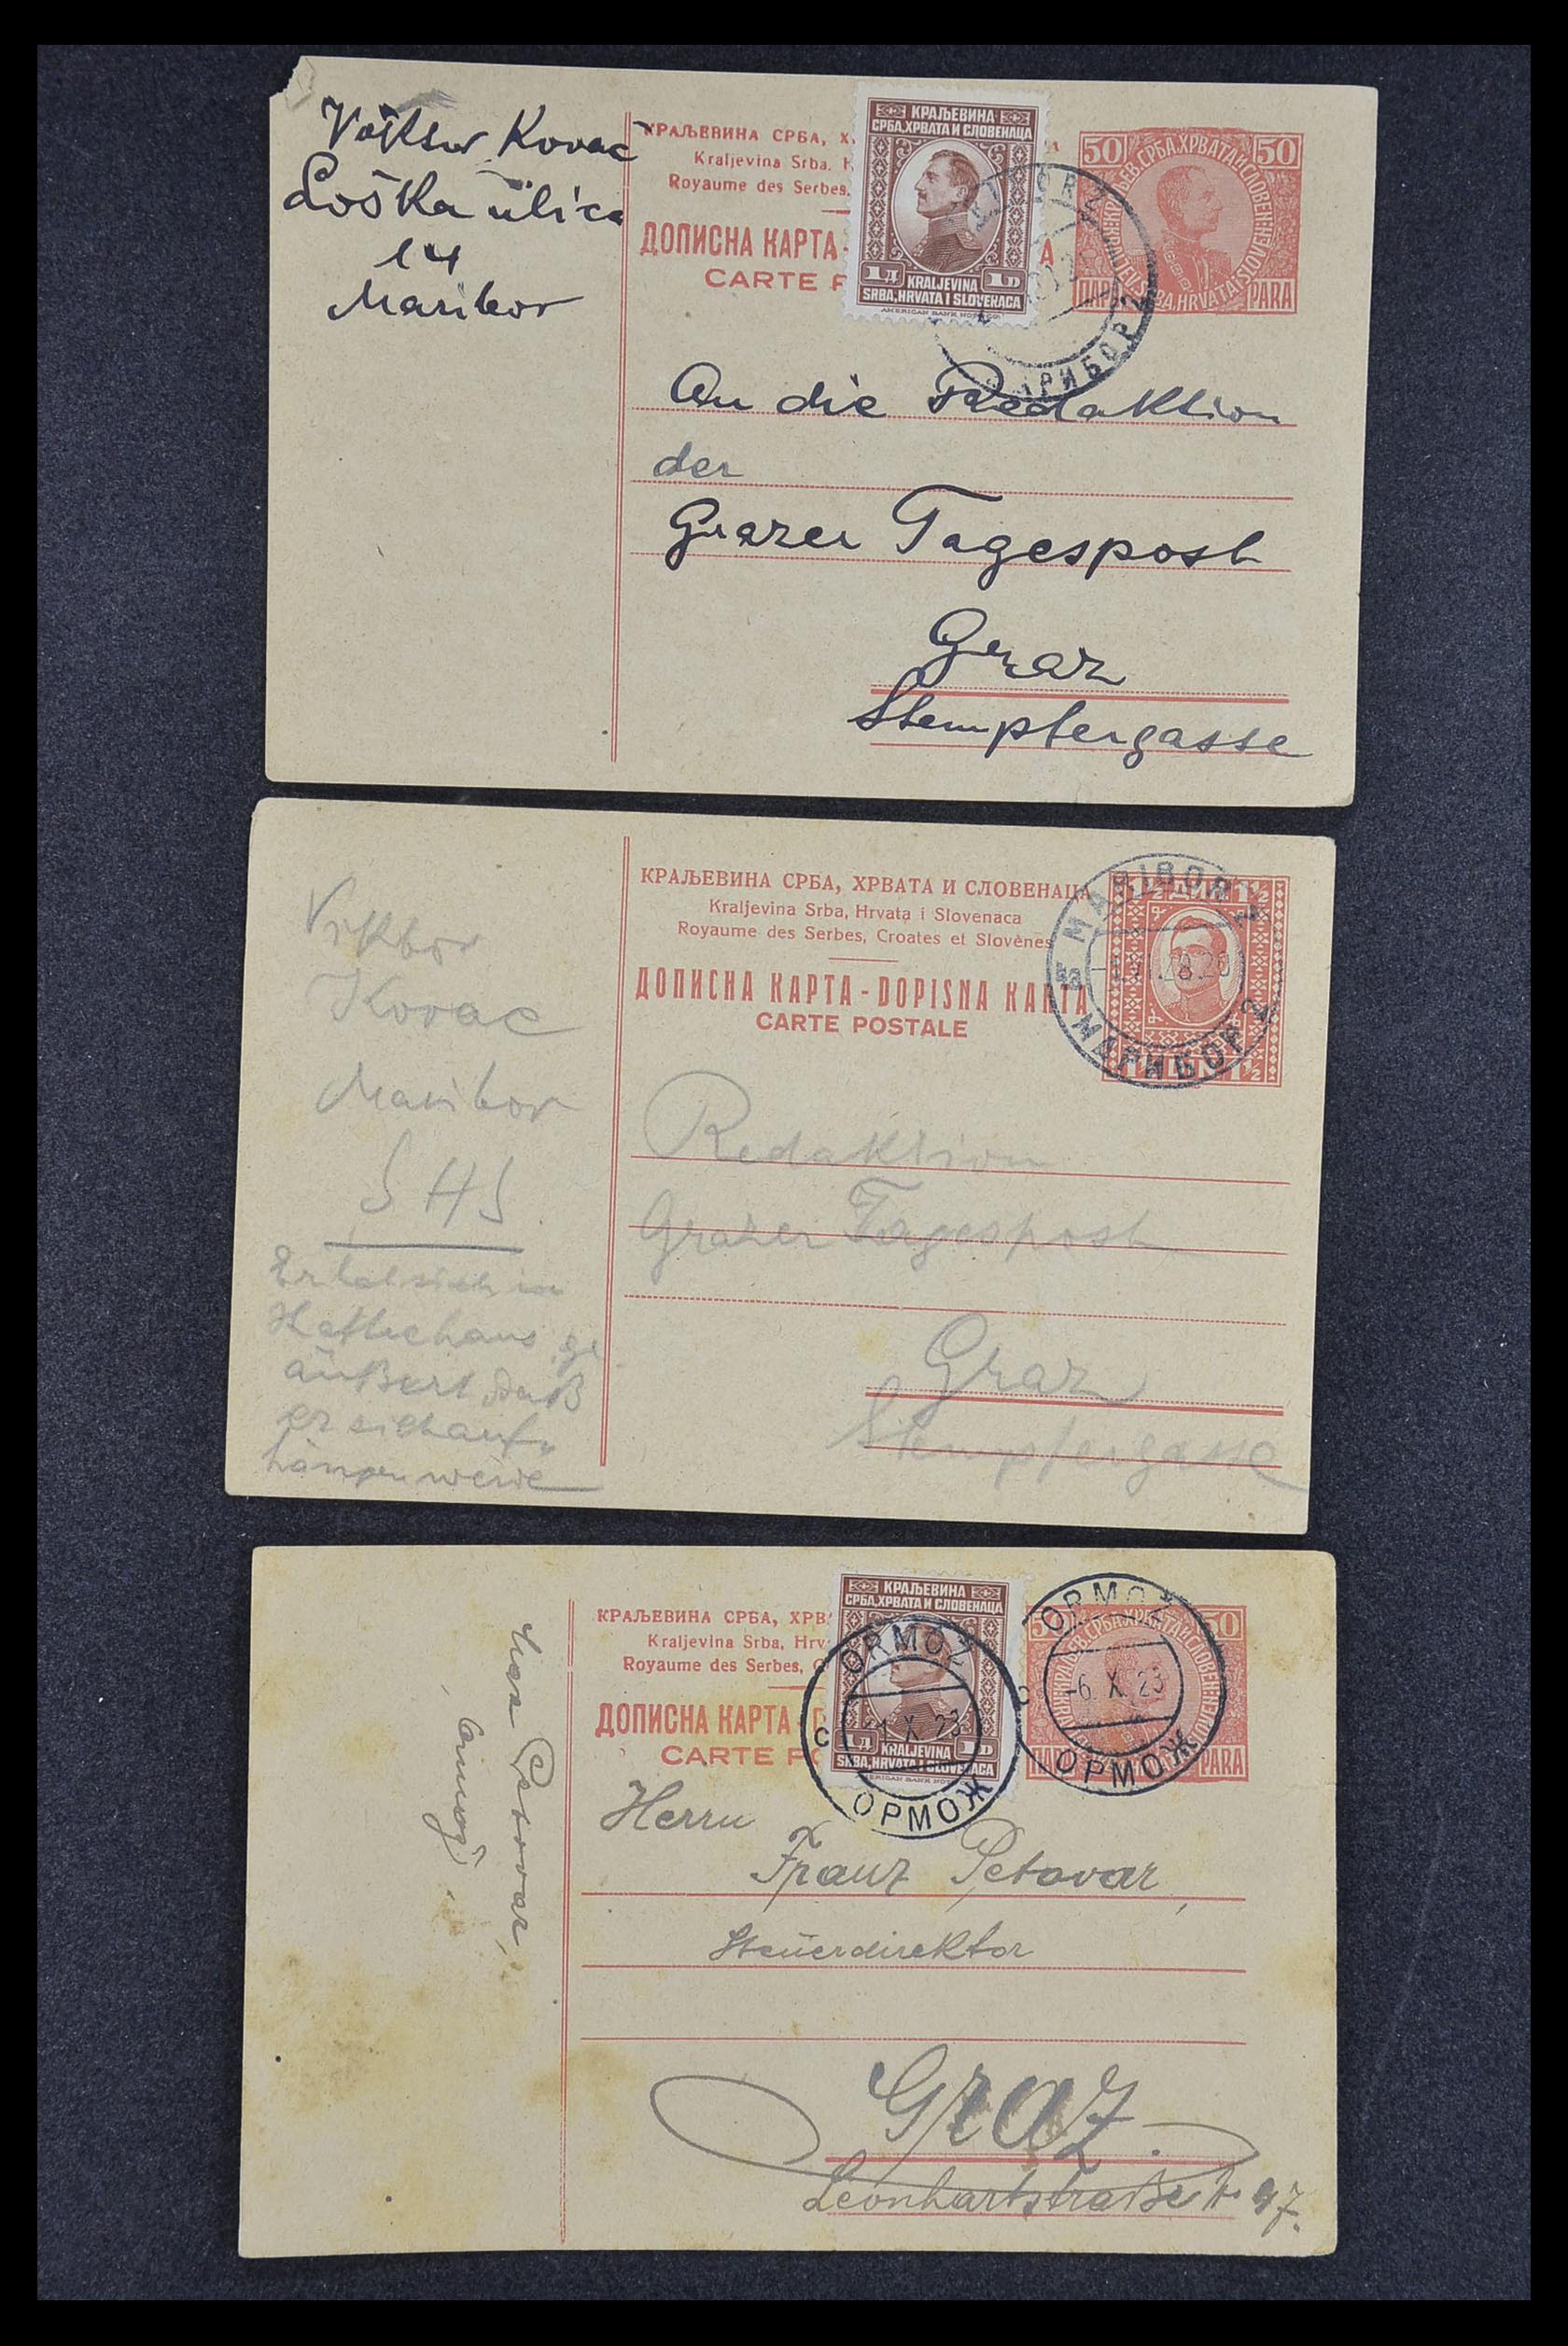 Kovač
Loška ulica
14
Maribor
КРАЉЕВИНА СРБА, Х
Kraljevina Srba. H
Royaume des Serbes.
ДОПИСНА КАРТА -
А
CARTE P
КРАЉЕВИНА
СРБА, ХРВАТА И СЛОВЕНАЦА
1Д 1D
KRALJEVINA
SRBA, HRVATA I SLOVENACA
AMERICAN BANK NOTE CO.
50 50
ПАРА PARA
МАРИБОР 2
An die Redaktion
der
Grazer Tagespost
Graz
Stempfergasse
Viktor
Kovac
Maribor
SHS
Er hat sich im
äußert daß
er sich auf-
hängen werde
КРАЉЕВИНА СРБА, ХРВАТА И СЛОВЕНАЦА
Kraljevina Srba, Hrvata i Slovenaca
Royaume des Serbes, Croates et Slovènes
ДОПИСНА КАРТА - DOPISNA KARTA
CARTE POSTALE
MARIBOR 2
МАРИБОР 2
Redaktion
Grazer Tagespost
Graz
Stempfergasse
Petovar,
Ormož.
КРАЉЕВИНА СРБА, ХРВ
Kraljevina Srba, Hrv
Royaume des Serbes, C
ДОПИСНА КАРТА -
CARTE PO
КРАЉЕВИНА
СРБА, ХРВАТА И СЛОВЕНАЦА
1Д 1D
KRALJEVINA
SRBA, HRVATA I SLOVENACA
ORMOŽ
X 23
ОРМОЖ
50 50
PARA
ORMOŽ
-6. X. 23
ОРМОЖ
Herrn
Franz Petovar,
Steuerdirektor
Graz.
Leonhartstraße 97.